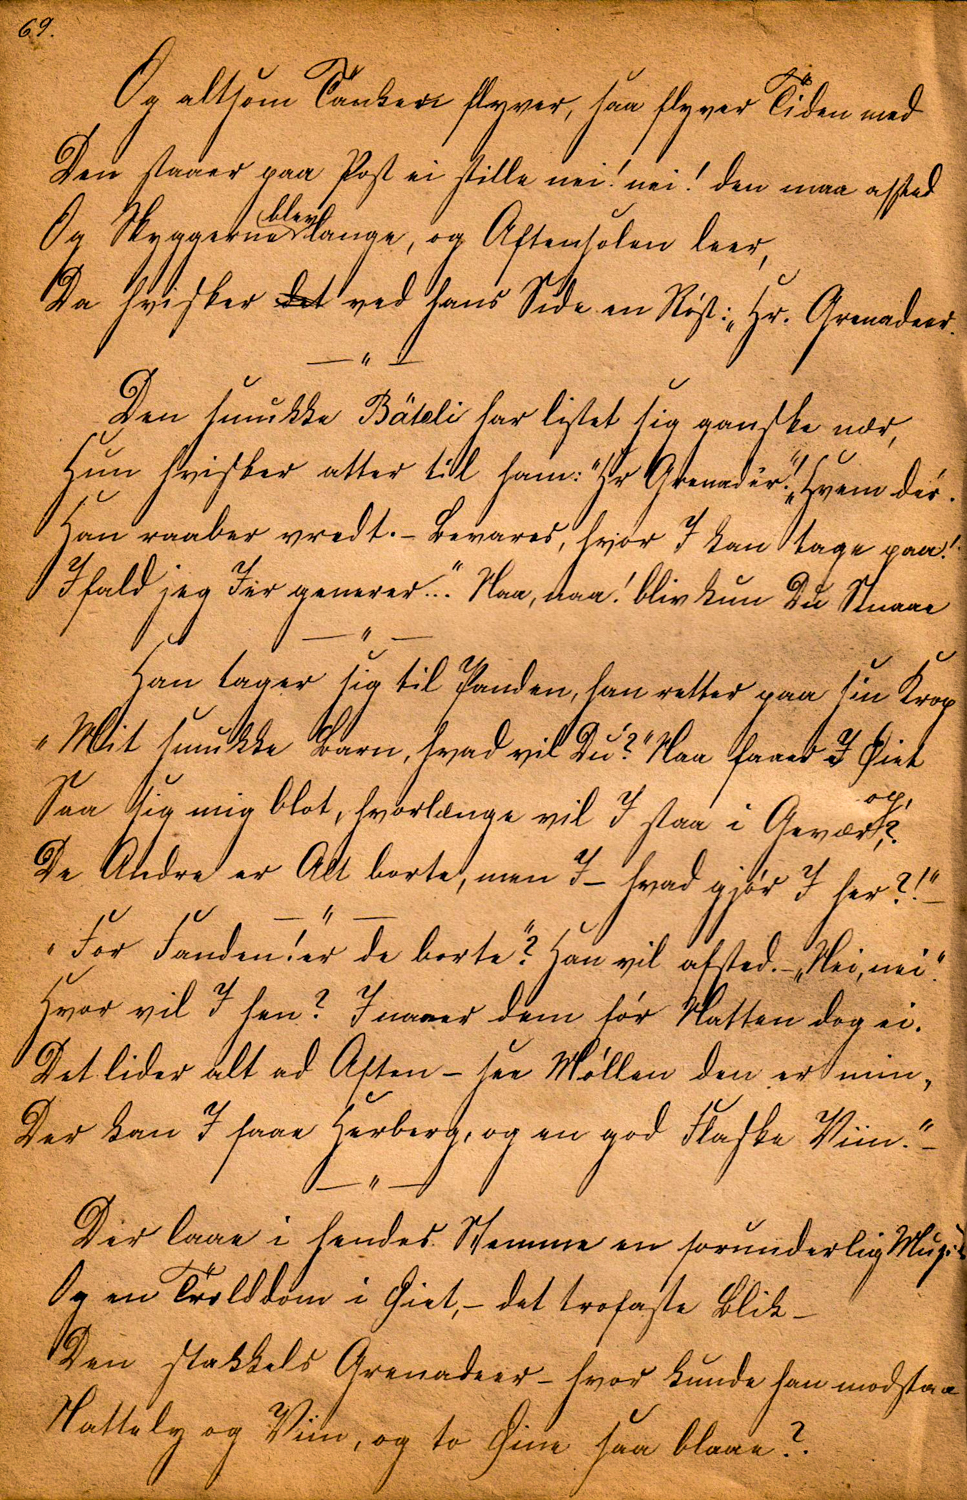 69.
Og altsom Tanken flyver, saa flyver Tiden med
Den staaer paa Post ei stille nei! nei! den maa afsted
Og Skyggerne blev lange, og Aftensolen leer,
Da hvisker det ved hans Side en Røst: „Hr. Grenadeer.
— „ —
Den smukke Bäteli har listet sig ganske nær,
Hun hvisker atter til ham: "Hr Grenadér!" „Hvem dér.
Han raaber vredt. – Bevares, hvor I kan tage paa!
Ifald jeg Jer generer..." Naa, naa! bliv kun Du Smaae
— „ —
Han tager sig til Panden, han retter paa sin Krop
„Mit smukke Barn, hvad vil Du?" Naa faaer I Øiet
op,
Saa sig mig blot, hvorlænge vil I staa i Gevær?
De Andre er Alt borte, men I – hvad gjør I her?!" –
— „ —
„For Fanden! er de borte"? Han vil afsted. – „Nei, nei."
Hvor vil I hen? I naaer dem før Natten dog ei.
Det lider alt ad Aften – see Møllen den er min,
Der kan I faae Herberg, og en god Flaske Viin." –
— „ —
Der laae i hendes Stemme en forunderlig Musik
Og en Trolddom i Øiet, – det trofaste Blik –
Den stakkels Grenadeer – hvor kunde han modstaa
Nattely og Viin, og to Øine saa blaae?